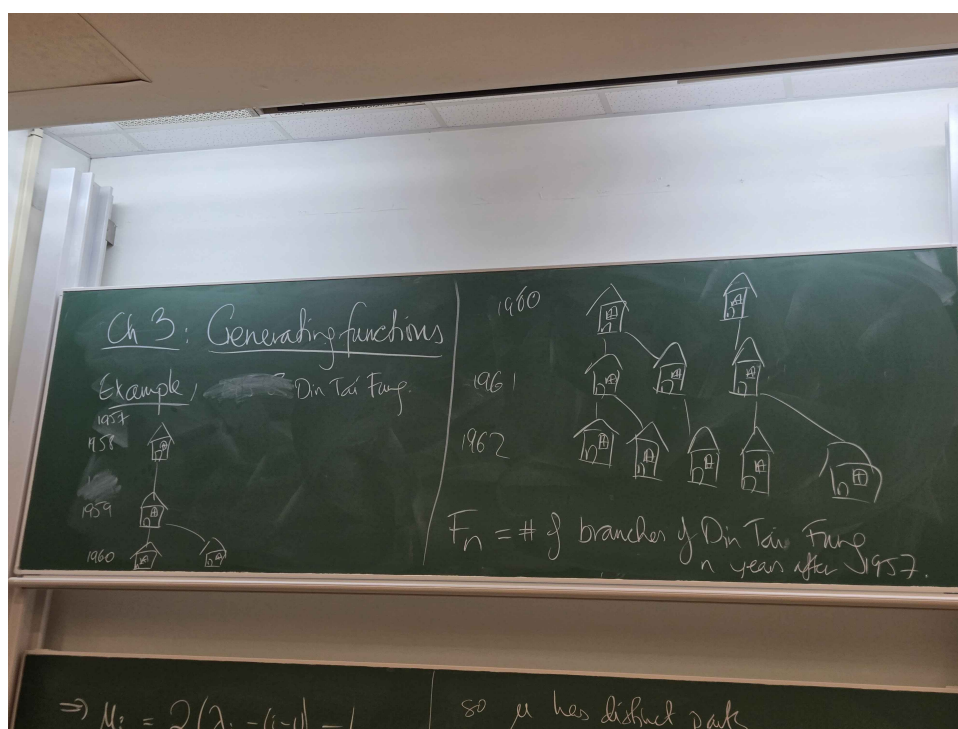 Ch 3: Generating functions
Example, Din Tai Fung.
1957
1958
1959
1960
1960
1961
1962
Fn = # of branches of Din Tai Fung
n years after 1957.
⇒ μi = 2(λi - (i-1)) - 1
so μ has distinct parts